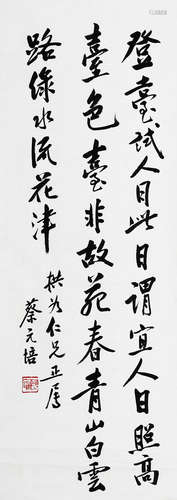 登臺試人日此日謂宜人日照高
臺色臺非故苑春青山白雲
路綠水流花津
拱为仁兄正属
蔡元培